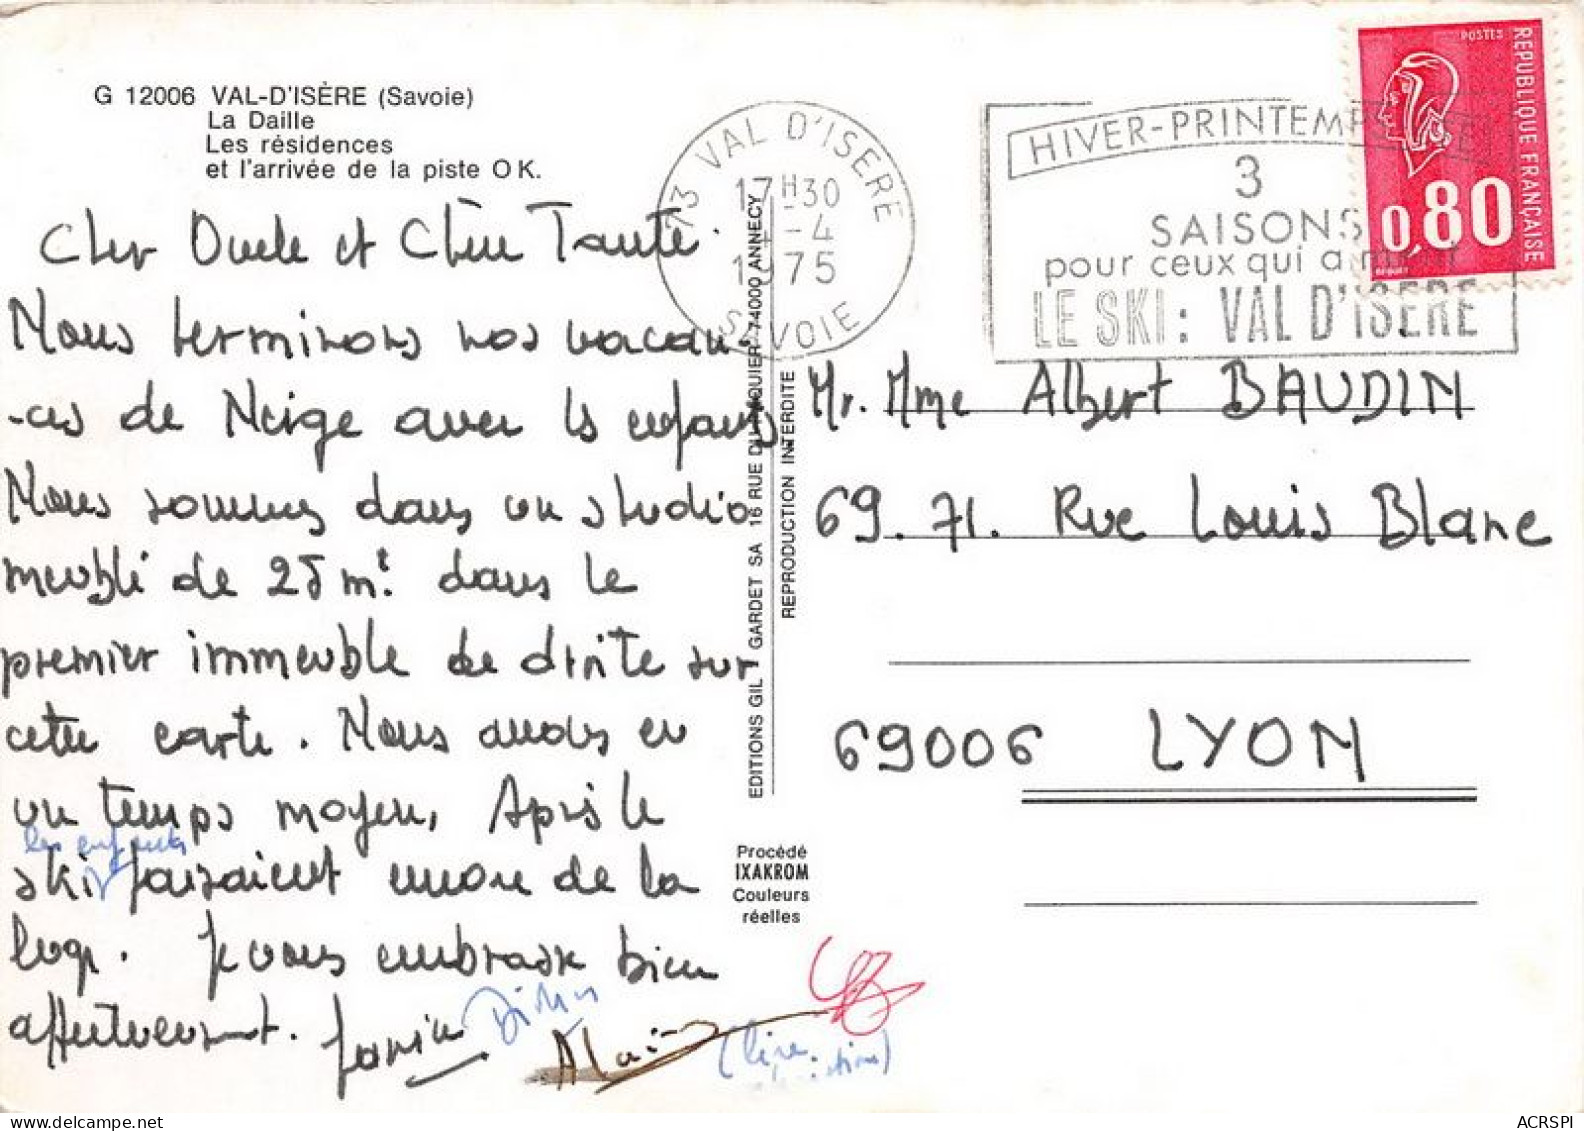 G 12006 VAL-D'ISÈRE (Savoie)
La Daille
Les résidences
et l'arrivée de la piste O K.
73 VAL D'ISERE
17H30
4-4
1975
SAVOIE
HIVER-PRINTEMPS
3
SAISONS
pour ceux qui aiment
LE SKI : VAL D'ISERE
POSTES
REPUBLIQUE FRANÇAISE
0,80
BEQUET
Cher Oncle et Chère Tante.
Nous terminons nos vacan-
-ces de Neige avec les enfants.
Nous sommes dans un studio
meublé de 25 m². dans le
premier immeuble de droite sur
cette carte. Nous avons eu
un temps moyen, Après le
les enfants
ski faisaient encore de la
luge. Je vous embrasse bien
affectueusement. Janine
Didier
Alain
(lire
Mr. Mme Albert BAUDIN
69.71. Rue Louis Blanc
69006 LYON
EDITIONS GIL GARDET SA 16 RUE DU PAQUIER 74000 ANNECY
REPRODUCTION INTERDITE
Procédé
IXAKROM
Couleurs
réelles
ACRSPI